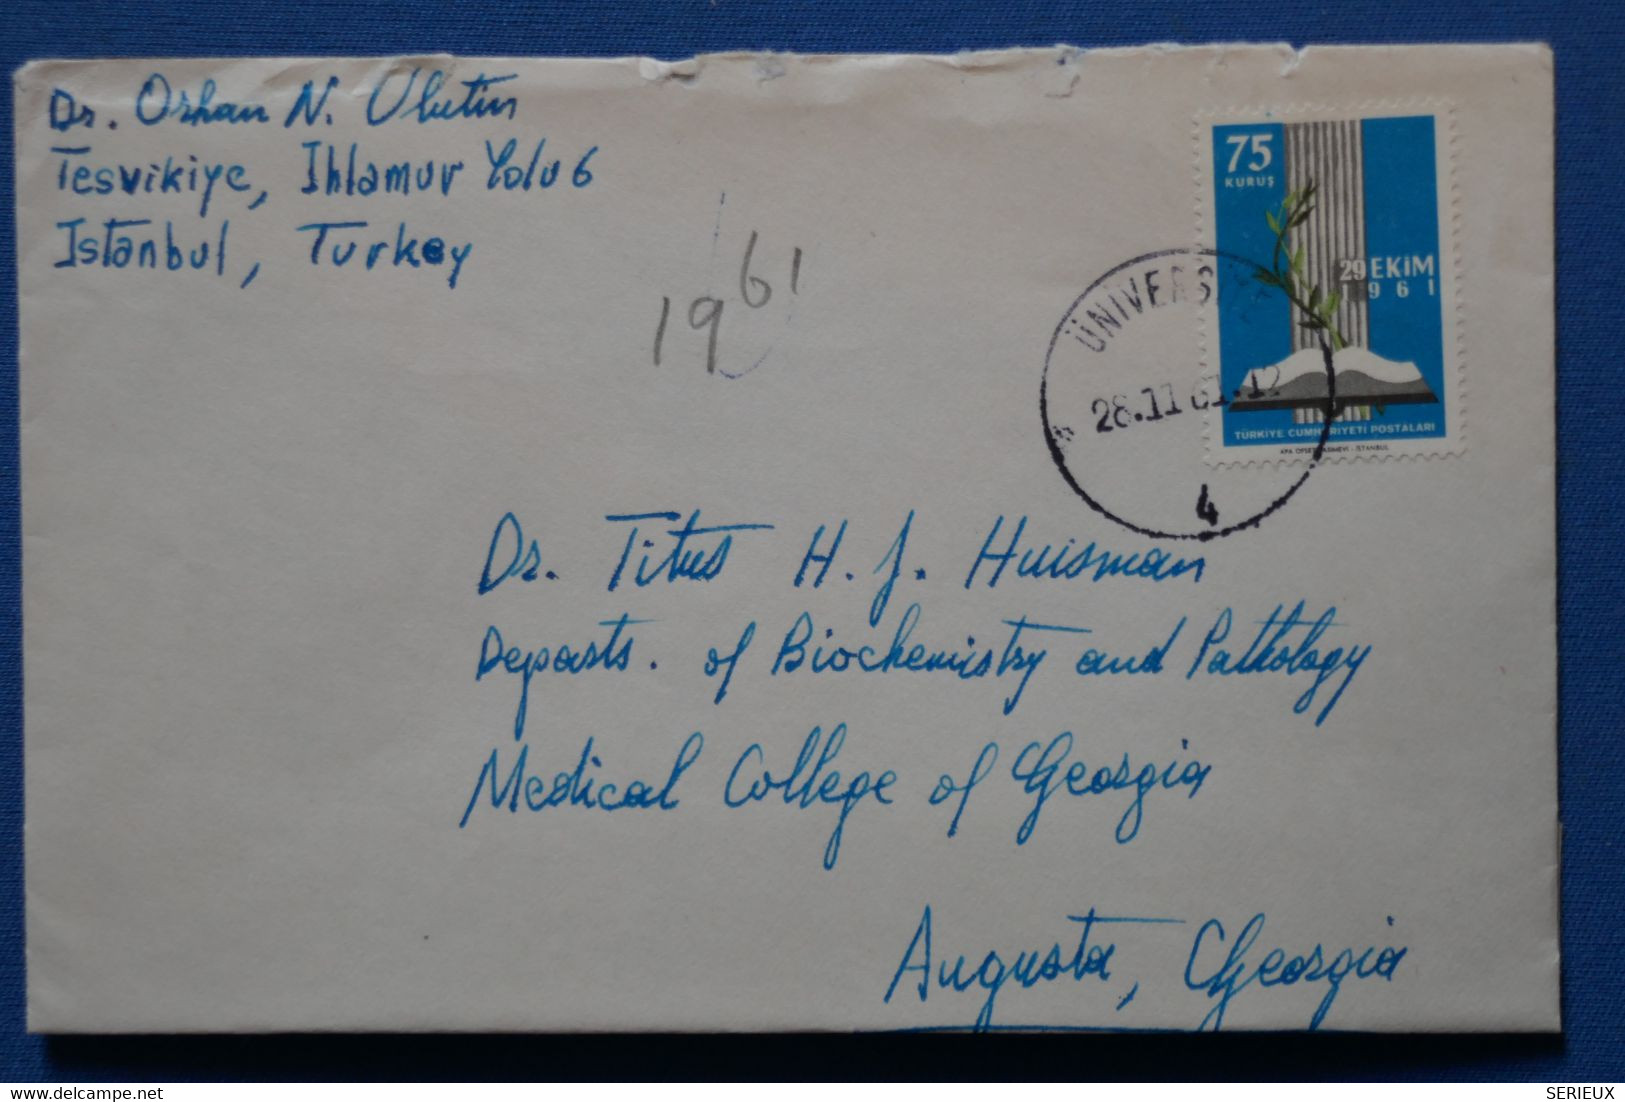 Dr. Orhan N. Ulutin
Tesvikiye, Ihlamur Yolu 6
Istanbul, Turkey
1961
75
KURUŞ
29 EKİM
1961
TÜRKİYE CUMHURİYETİ POSTALARI
ÜNİVERS
28.11.61.12
4
Dr. Titus H. J. Huisman
Departs. of Biochemistry and Pathology
Medical College of Georgia
Augusta, Georgia
delcampe.net
SERIEUX